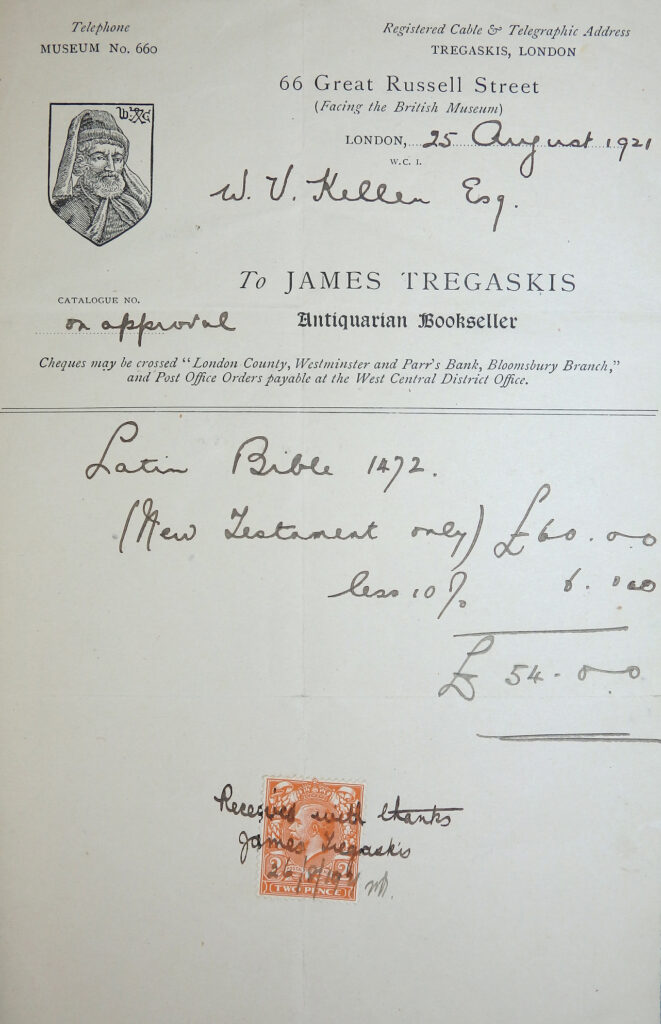 Telephone
MUSEUM No. 660
Registered Cable & Telegraphic Address
TREGASKIS, LONDON
66 Great Russell Street
(Facing the British Museum)
LONDON, 25 August 1921
W.C. 1.
W. V. Kellen Esq.
To JAMES TREGASKIS
CATALOGUE NO.
on approval
Antiquarian Bookseller
Cheques may be crossed "London County, Westminster and Parr's Bank, Bloomsbury Branch,"
and Post Office Orders payable at the West Central District Office.
Latin Bible 1472.
(New Testament only) £60.0.0
less 10% 6.0.0
£54.0.0
Received with thanks
James Tregaskis
TWO PENCE